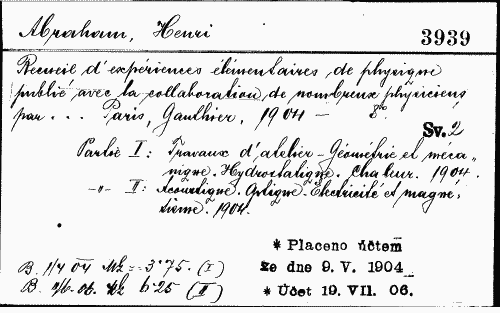 Abraham, Henri
3939
Recueil d'expériences élémentaires de physique
publié avec la collaboration de nombreux physiciens
par . . . Paris, Gauthier, 1904 — 8°
Sv. 2
Partie I : Travaux d'atelier - Géométrie et méca„
nique. Hydrostatique. Chaleur. 1904.
-„- II : Acoustique. Optique. Électricité et magné,
tisme. 1904.
* Placeno účtem
B. 1/4 04 Mk = 3·75. (I)
ze dne 9. V. 1904
B. 2/6. 06. Mk 6·25 (II)
* Účet 19. VII. 06.